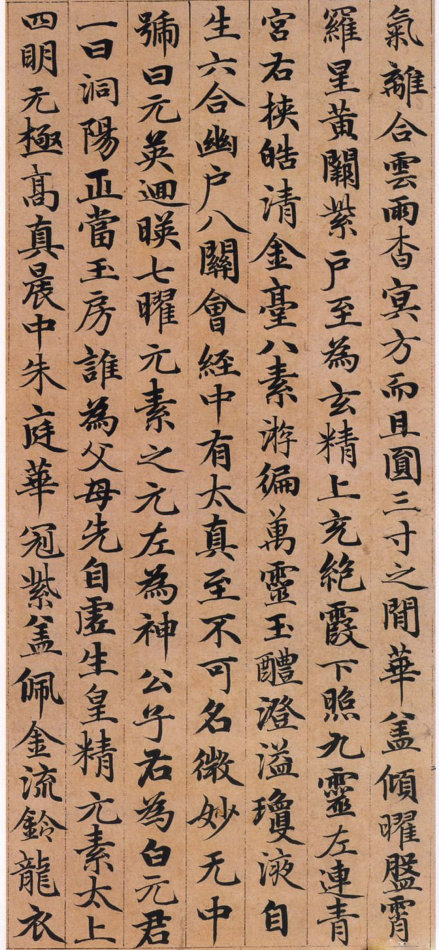 氣離合雲雨杳冥方而且圓三寸之間華盖傾曜盤霄
羅星黃關紫戶至為玄精上充絕霞下照九靈左連青
宮右挾皓清金臺八素游徧萬靈玉醴澄溢瓊液自
生六合幽戶八關會經中有太真至不可名微妙无中
號曰元英迴暎七曜元素之元左為神公子右為白元君
一曰洞陽正當玉房誰為父母先自虛生皇精元素太上
四明无極高真晨中朱庭華冠紫盖佩金流鈴龍衣